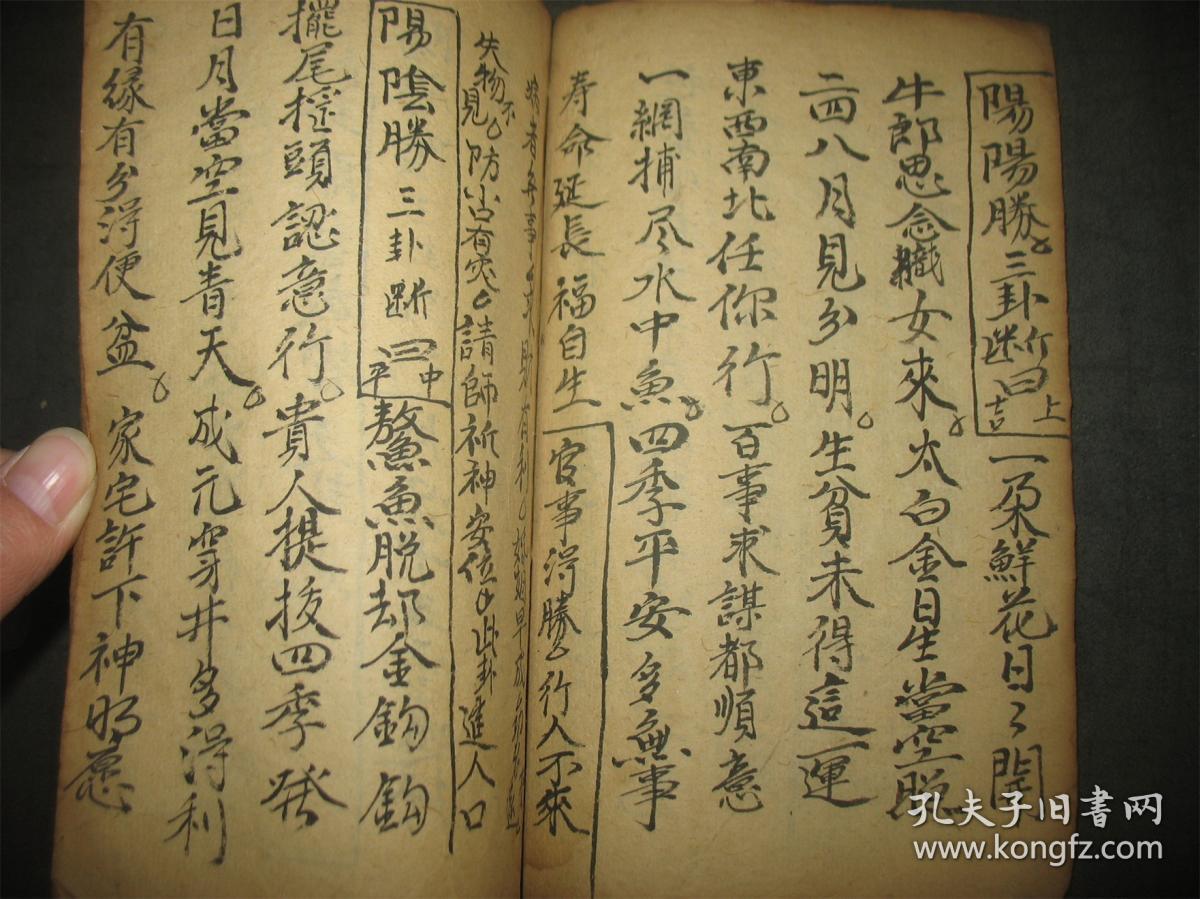 陽陽勝三卦断曰上吉一朶鮮花日〻開
牛郎思念織女來太白金日生當空晛
二四八月見分明生貧未得這一運
東西南北任你行百事求謀都順意
一網捕尽水中魚四季平安多無事
寿命延長福自生官事淂勝行人不來
失物不見防小口有灾請師祈神安位此卦進人口
陽陰勝三卦断曰中平鰲魚脱却金鈎鈎
擺尾搖頭認意行貴人提抜四季發
日月當空見青天成元穿井多淂利
有緣有分淂便盆家宅許下神明愿
孔夫子旧书网
www.kongfz.com